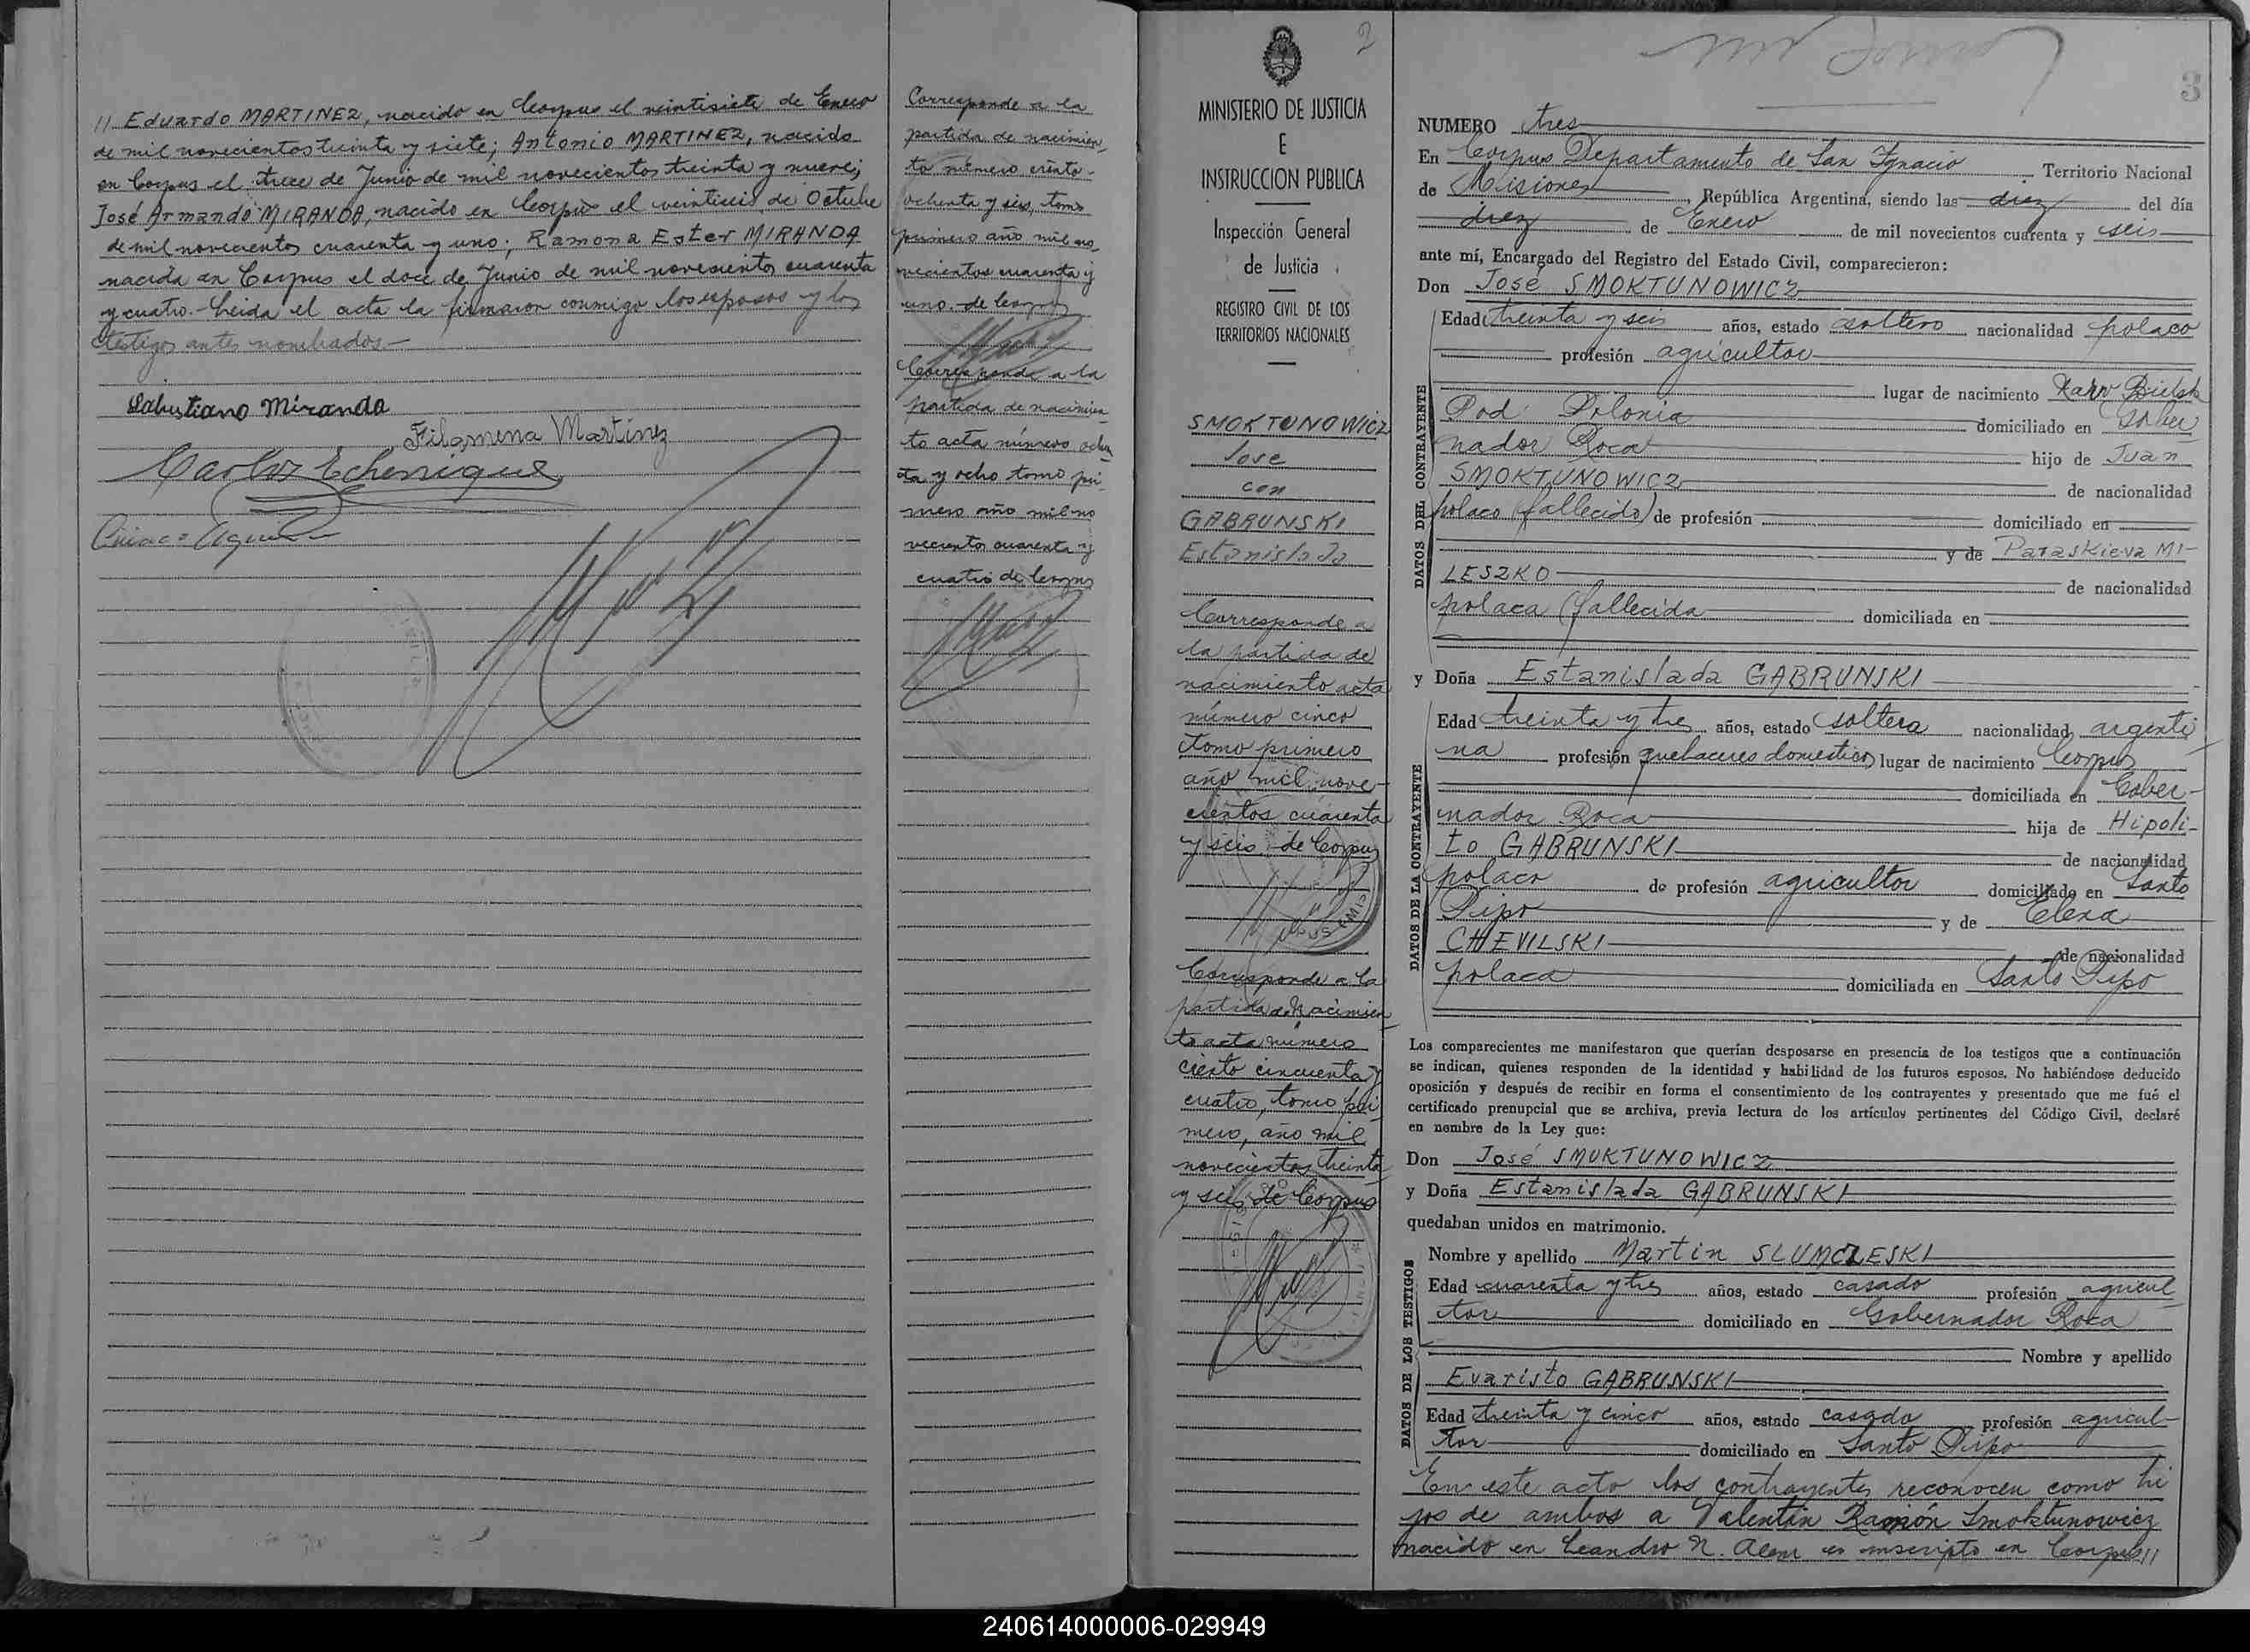 // Eduardo MARTINEZ, nacido en Corpus el veintisiete de Enero
de mil novecientos treinta y siete; Antonio MARTINEZ, nacido
en Corpus el trece de Junio de mil novecientos treinta y nueve;
José Armando MIRANDA, nacido en Corpus el veintiseis de Octubre
de mil novecientos cuarenta y uno; Ramona Ester MIRANDA
nacida en Corpus el doce de Junio de mil novecientos cuarenta
y cuatro.- Leida el acta la firmaron conmigo los esposos y los
testigos antes nombrados-
Salustiano Miranda
Filomena Martinez
Carlos Echenique
Corresponde a la
partida de nacimien_
to número ciento-
ochenta y seis, tomo
primero año mil no_
vecientos cuarenta y
uno de Corpus
Corresponde a la
partida de nacimien
to acta número ochen
ta y ocho tomo pri-
mero año mil no
vecientos cuarenta y
cuatro de Corpus
2
MINISTERIO DE JUSTICIA
E
INSTRUCCION PUBLICA
Inspección General
de Justicia
REGISTRO CIVIL DE LOS
TERRITORIOS NACIONALES
SMOKTUNOWICZ
Jose
con
GABRUNSKI
Estanislada
Corresponde a
la partida de
nacimiento acta
número cinco
tomo primero
año mil nove-
cientos cuarenta
y seis de Corpus
Corresponde a la
partida de Nacimien
to acta número
ciento cincuenta y
cuatro, tomo pri
mero, año mil
novecientos treinta
y seis de Corpus
3
NUMERO tres
En Corpus Departamento de San Ignacio Territorio Nacional
de Misiones, República Argentina, siendo las diez del día
diez de Enero de mil novecientos cuarenta y seis
ante mí, Encargado del Registro del Estado Civil, comparecieron:
Don José SMOKTUNOWICZ
DATOS DEL CONTRAYENTE
Edad treinta y seis años, estado soltero nacionalidad polaco
profesión agricultor
lugar de nacimiento Karv Bielsk
Pod. Polonia domiciliado en Gober
nador Roca hijo de Juan
SMOKTUNOWICZ de nacionalidad
polaco (fallecido) de profesión domiciliado en
y de Paraskieva MI-
LESZKO de nacionalidad
polaca (fallecida domiciliada en
y Doña Estanislada GABRUNSKI
DATOS DE LA CONTRAYENTE
Edad treinta y tres años, estado soltera nacionalidad argenti
na profesión quehaceres domesticos lugar de nacimiento Corpus
domiciliada en Gober-
nador Roca hija de Hipóli-
to GABRUNSKI de nacionalidad
polaco de profesión agricultor domiciliado en Santo
Pipo y de Elena
CHEVILSKI de nacionalidad
polaca domiciliada en Santo Pipo
Los comparecientes me manifestaron que querían desposarse en presencia de los testigos que a continuación
se indican, quienes responden de la identidad y habilidad de los futuros esposos. No habiéndose deducido
oposición y después de recibir en forma el consentimiento de los contrayentes y presentado que me fué el
certificado prenupcial que se archiva, previa lectura de los artículos pertinentes del Código Civil, declaré
en nombre de la Ley que:
Don José SMOKTUNOWICZ
y Doña Estanislada GABRUNSKI
quedaban unidos en matrimonio.
DATOS DE LOS TESTIGOS
Nombre y apellido Martin SLUMCZESKI
Edad cuarenta y tres años, estado casado profesión agricul
tor domiciliado en Gobernador Roca
Nombre y apellido
Evaristo GABRUNSKI
Edad treinta y cinco años, estado casado profesión agricul-
tor domiciliado en Santo Pipo
En este acto los contrayentes reconocen como hi
jos de ambos a Valentín Ramón Smoktunowicz
nacido en Leandro N. Alem es inscripto en Corpus//
240614000006-029949